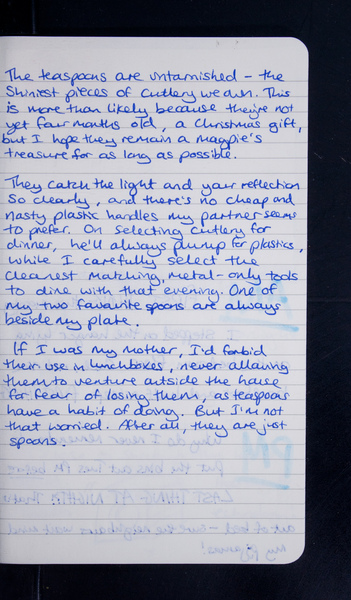 The teaspoons are untarnished – the
shiniest pieces of cutlery we own. This
is more than likely because they're not
yet four months old, a Christmas gift,
but I hope they remain a magpie's
treasure for as long as possible.

They catch the light and your reflection
so clearly, and there's no cheap and
nasty plastic handles my partner seems
to prefer. On selecting cutlery for
dinner, he'll always plump for plastics,
while I carefully select the
cleanest matching, metal-only tools
to dine with that evening. One of
my two favourite spoons are always
beside my plate.

If I was my mother, I'd forbid
their use in lunchboxes, never allowing
them to venture outside the house
for fear of losing them, as teaspoons
have a habit of doing. But I'm not
that worried. After all, they are just
spoons.